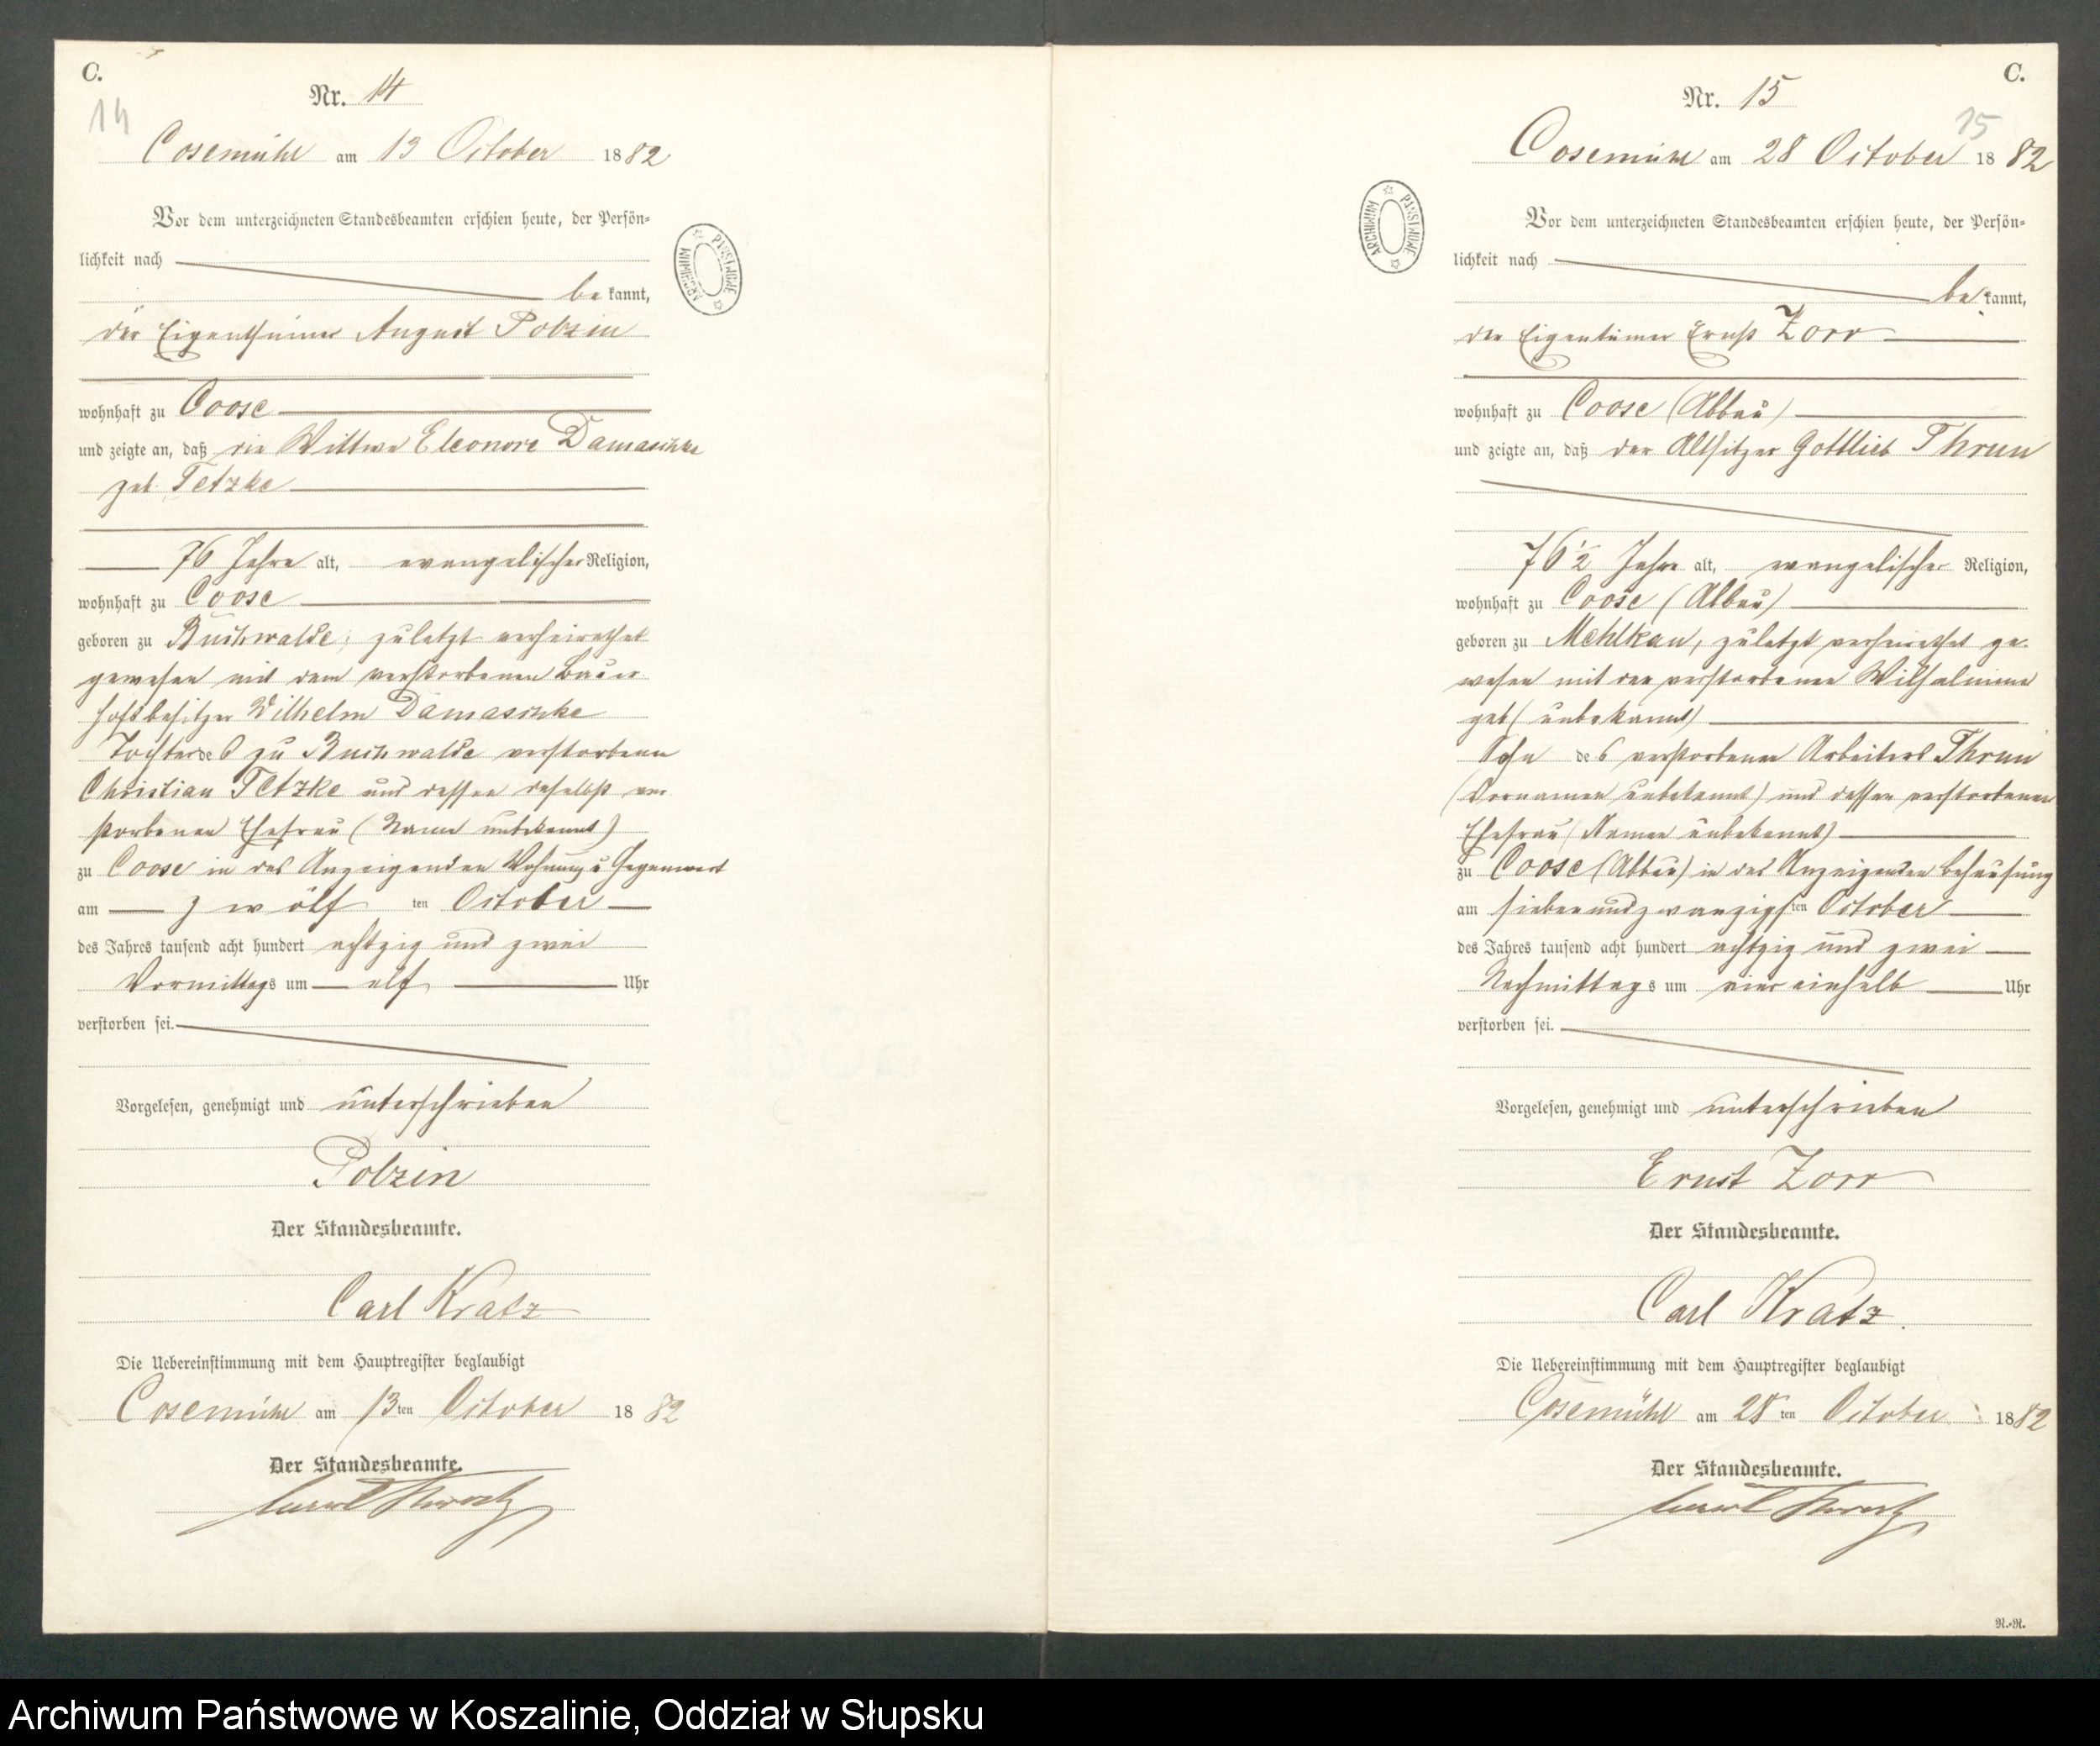 C.
14
Nr. 14
Cosemühl am 13 October 1882
Vor dem unterzeichneten Standesbeamten erschien heute, der Persön-
lichkeit nach
be kannt,
der Eigenthümer August Polzin
wohnhaft zu Coose
und zeigte an, daß die Wittwe Eleonore Damaschke
geb. Tetzke
76 Jahre alt, evangelischer Religion,
wohnhaft zu Coose
geboren zu Buchwalde, zuletzt verheirathet
gewesen mit dem verstorbenen Bauer
hofsbesitzer Wilhelm Damaschke
Tochter des zu Buchwalde verstorbenen
Christian Tetzke und dessen daselbst ver
storbenen Ehefrau (Name unbekannt)
zu Coose in des Anzeigenden Wohnung u Gegenwart
am zwölf ten October
des Jahres tausend acht hundert achtzig und zwei
Vormittags um elf Uhr
verstorben sei.
Vorgelesen, genehmigt und unterschrieben
Polzin
Der Standesbeamte.
Carl Kratz
Die Uebereinstimmung mit dem Hauptregister beglaubigt
Cosemühl am 13ten October 1882
Der Standesbeamte.
Carl Kratz
ARCHIWUM PAŃSTWOWE
C.
15
Nr. 15
Cosemühl am 28 October 1882
Vor dem unterzeichneten Standesbeamten erschien heute, der Persön-
lichkeit nach
be kannt,
der Eigentümer Ernst Zorr
wohnhaft zu Coose (Abbau)
und zeigte an, daß der Altsitzer Gottlieb Thrun
76 1/2 Jahre alt, evangelischer Religion,
wohnhaft zu Coose (Abbau)
geboren zu Mehlkau, zuletzt verheirathet ge-
wesen mit der verstorbenen Wilhelmine
geb (unbekannt)
Sohn des verstorbenen Arbeiters Thrun
(Vornamen unbekannt) und dessen verstorbenen
Ehefrau (Namen unbekannt)
zu Coose (Abbau) in des Anzeigenden Behausung
am siebenundzwanzigsten October
des Jahres tausend acht hundert achtzig und zwei
Nachmittags um vier einhalb Uhr
verstorben sei.
Vorgelesen, genehmigt und unterschrieben
Ernst Zorr
Der Standesbeamte.
Carl Kratz.
Die Uebereinstimmung mit dem Hauptregister beglaubigt
Cosemühl am 28ten October 1882
Der Standesbeamte.
Carl Kratz
R.-R.
ARCHIWUM PAŃSTWOWE
Archiwum Państwowe w Koszalinie, Oddział w Słupsku